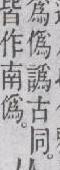 爲僞譌古同。
皆作南僞。